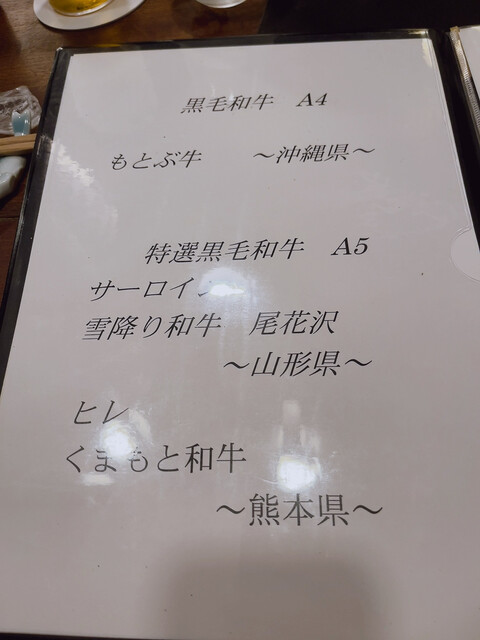 黒毛和牛　A4
もとぶ牛　　～沖縄県～
特選黒毛和牛　A5
サーロイン
雪降り和牛　尾花沢
～山形県～
ヒレ
くまもと和牛
～熊本県～